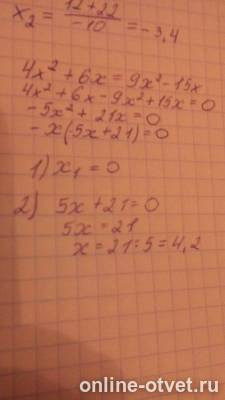 x₂ = (12+22)/(-10) = -3,4
4x² + 6x = 9x² - 15x
4x² + 6x - 9x² + 15x = 0
-5x² + 21x = 0
-x(5x + 21) = 0
1) x₁ = 0
2) 5x + 21 = 0
5x = 21
x = 21 : 5 = 4,2
online-otvet.ru